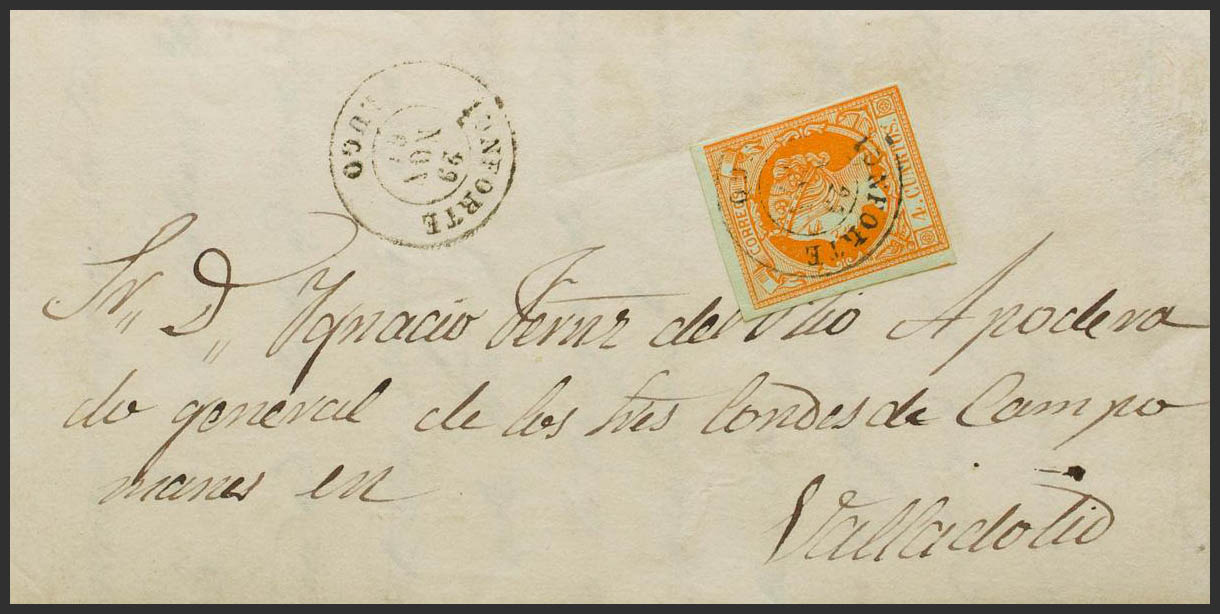 MONFORTE
29
NOV
LUGO
CORREOS
4. CUARTOS.
MONFORTE
Sr,, D,, Ygnacio Fernz del Rio Apodera
do general de los Sres Condes de Campo
manes en
Valladolid